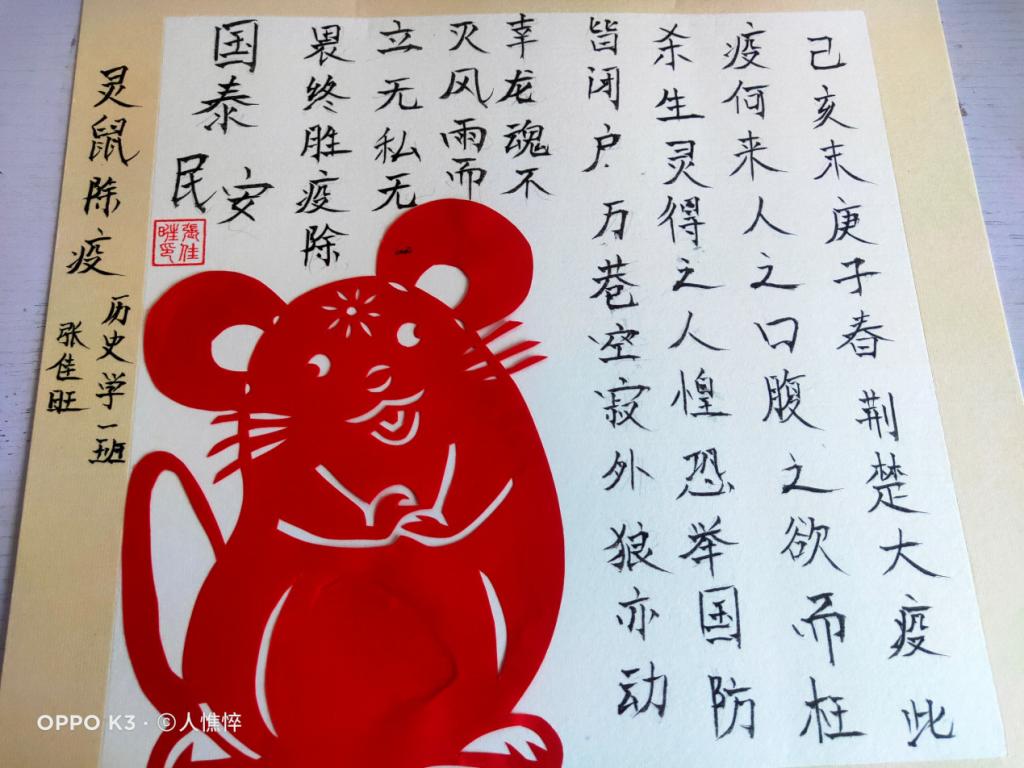 己亥末庚子春 荆楚大疫 此
疫何来人之口腹之欲而枉
杀生灵得之人惶恐举国防
皆闭户 万巷空寂外狼亦动
幸龙魂不
灭风雨而
立无私无
畏终胜疫除
国泰
民安
張佳旺印
灵鼠除疫
历史学一班
张佳旺
OPPO K3·©人憔悴